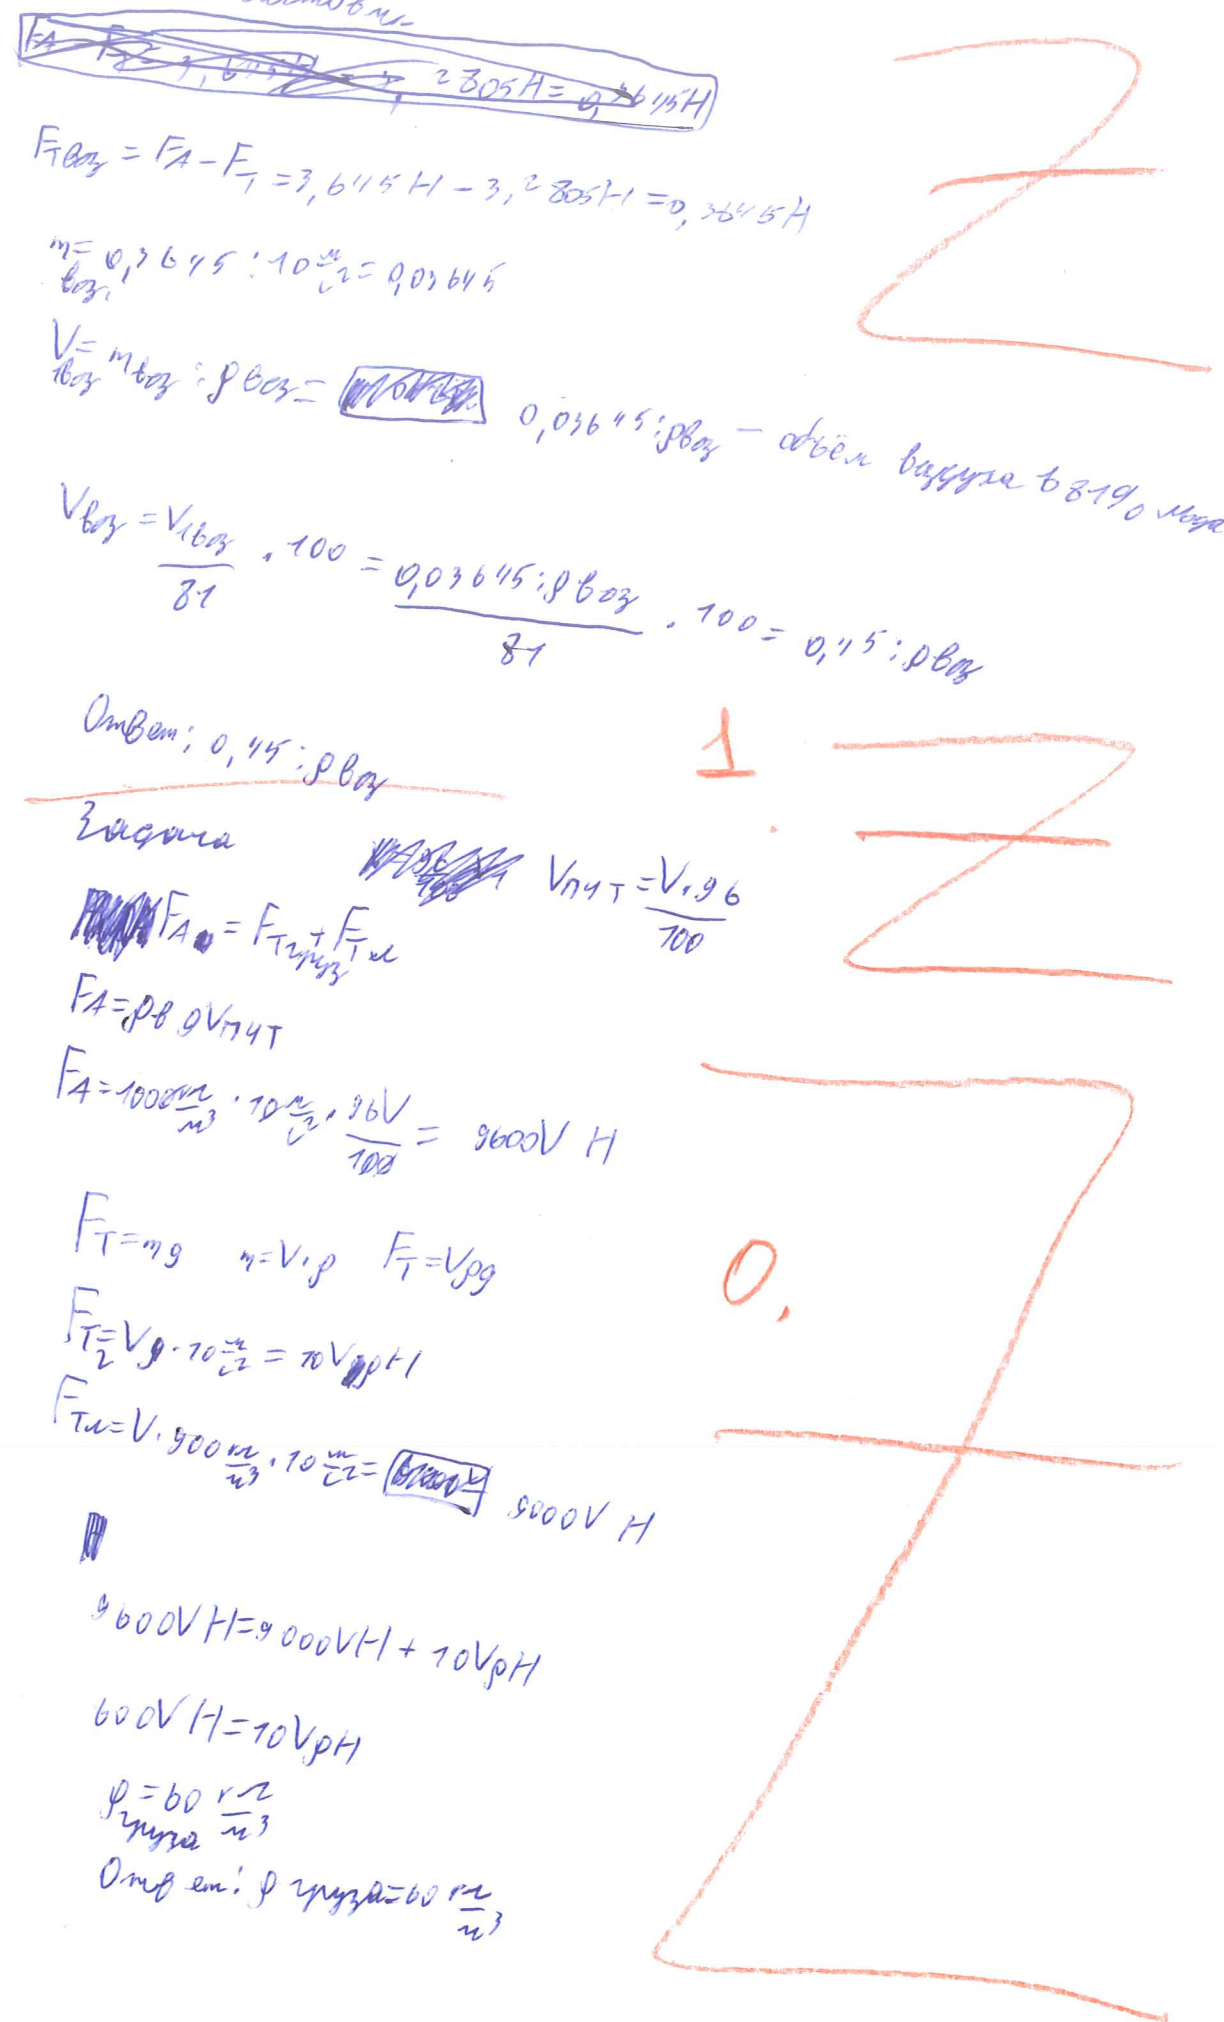 F_Tвоз = F_A - F_T = 3,645Н - 3,2805Н = 0,3645Н
m воз. = 0,3645 : 10 м/с² = 0,03645
V1воз = mвоз : ρвоз = 0,03645 : ρвоз - объём воздуха в 81%
Vвоз = V1воз/81 · 100 = 0,03645:ρвоз/81 · 100 = 0,45 : ρвоз
Ответ: 0,45 : ρвоз
1
Задача
Vпчт = V·96/100
F_A = F_Tгруз + F_Tл
F_A = ρв gVпчт
F_A = 1000 кг/м³ · 10 м/с² · 96V/100 = 9600V Н
F_T = mg m = V·ρ F_T = Vρg
0.
F_Tг = Vρ · 10 м/с² = 10VρН
F_Tл = V · 900 кг/м³ · 10 м/с² = 9000V Н
9600V Н = 9000VН + 10VρН
600V Н = 10VρН
ρ груза = 60 кг/м³
Ответ: ρ груза = 60 кг/м³